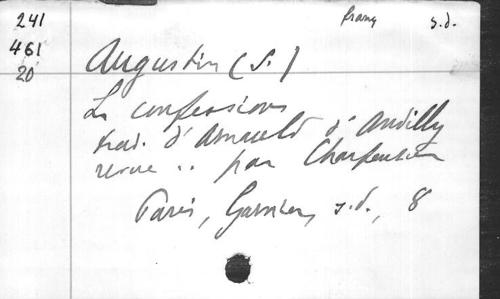 241
461
20
franç s.d.
Augustin (S.)
Les confessions
trad. d'Arnauld d'Andilly
revue .. par Charpentier
Paris, Garnier, s.d., 8